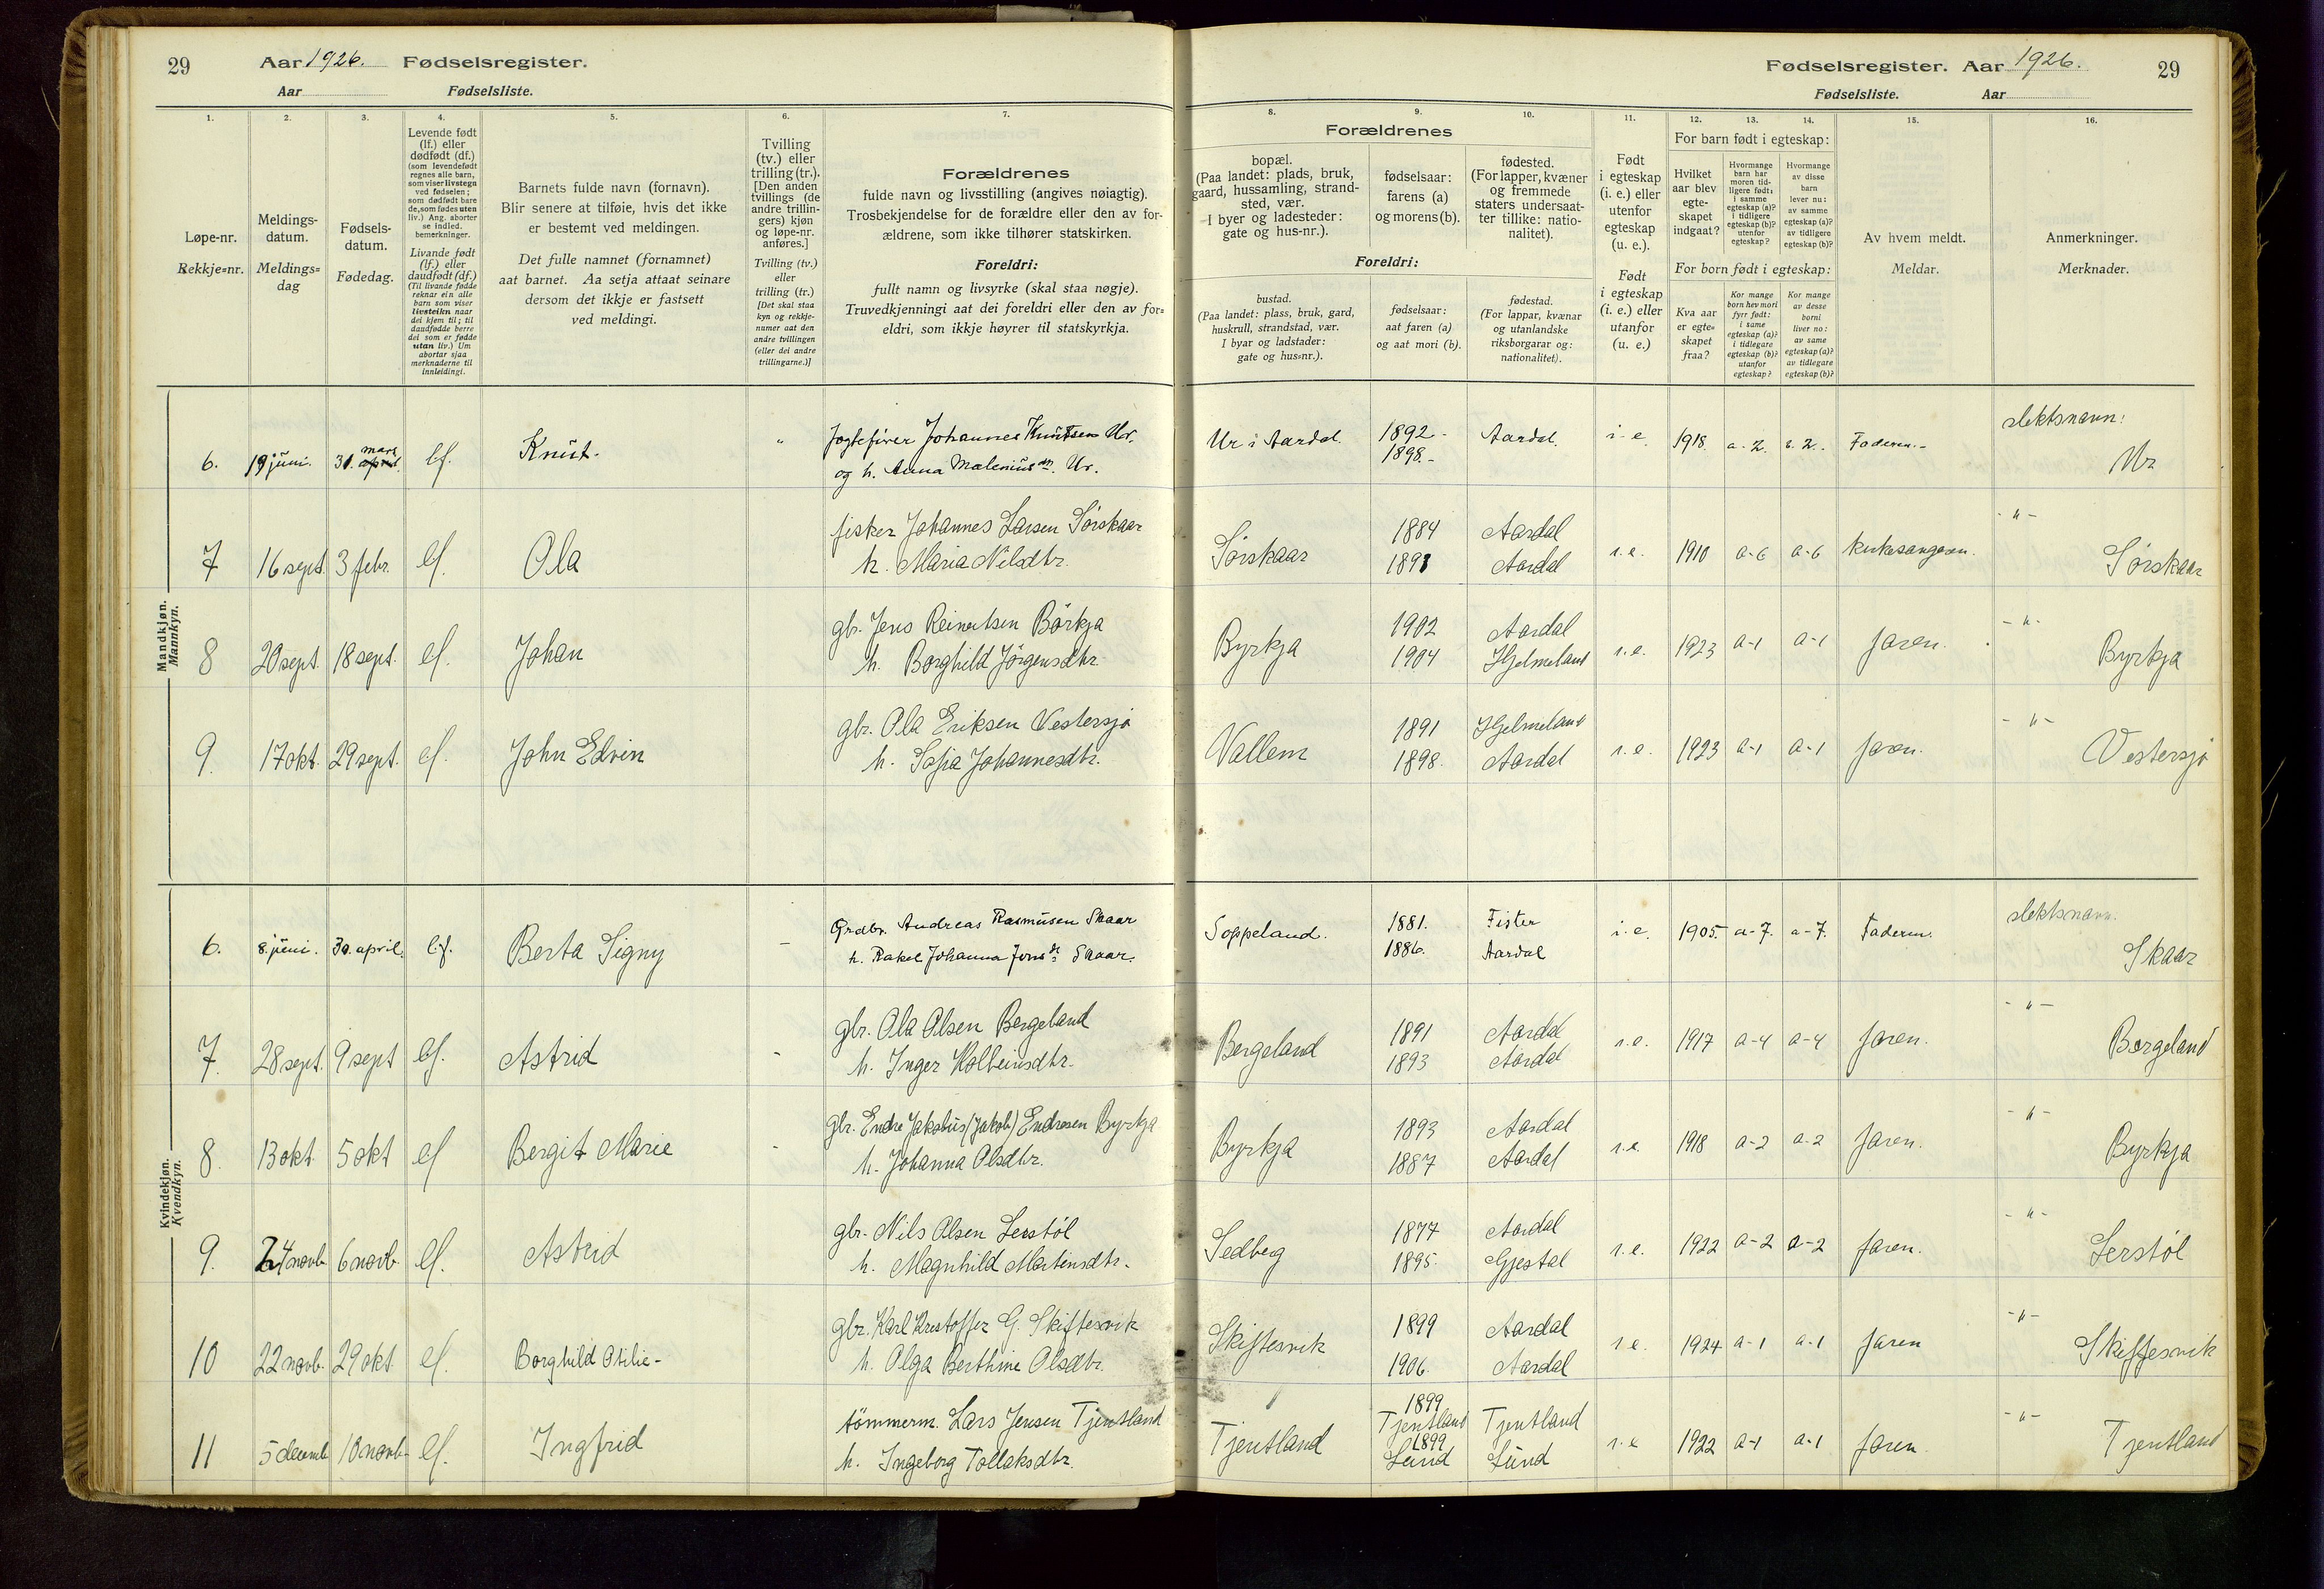 29 Aar 1926. Fødselsregister.
Aar Fødselsliste.
Fødselsregister. Aar 1926. 29
Fødselsliste. Aar
1. 2. 3. 4. 5. 6. 7.
Løpe-nr.
Rekkje=nr.
Meldings-
datum.
Meldings=
dag
Fødsels-
datum.
Fødedag.
Levende født
(lf.) eller
dødfødt (df.)
(som levendefødt
regnes alle barn,
som viser livstegn
ved fødselen;
som dødfødt bare
de, som fødes uten
liv.) Ang. aborter
se indled.
bemerkninger.
Livande født
(lf.) eller
daudfødt (df.)
(Til livande fødde
reknar ein alle
barn som viser
livsteikn naar
dei kjem til; til
daudfødde berre
dei som er fødde
utan liv.) Um
abortar sjaa
merknaderne til
innleidingi.
Barnets fulde navn (fornavn).
Blir senere at tilføie, hvis det ikke
er bestemt ved meldingen.
Det fulle namnet (fornamnet)
aat barnet. Aa setja attaat seinare
dersom det ikkje er fastsett
ved meldingi.
Tvilling
(tv.) eller
trilling (tr.).
[Den anden
tvillings (de
andre trillin-
gers) kjøn
og løpe-nr.
anføres.]
Tvilling (tv.)
eller
trilling (tr.)
[Det skal staa
kyn og rekkje-
numer aat den
andre tvillingen
(eller dei andre
trillingarne.)]
Forældrenes
fulde navn og livsstilling (angives nøiagtig).
Trosbekjendelse for de forældre eller den av for-
ældrene, som ikke tilhører statskirken.
Foreldri:
fullt namn og livsyrke (skal staa nøgje).
Truvedkjenningi aat dei foreldri eller den av for=
eldri, som ikkje høyrer til statskyrkja.
8. 9. 10. 11. 12. 13. 14. 15. 16.
Forældrenes
bopæl.
(Paa landet: plads, bruk,
gaard, hussamling, strand-
sted, vær.
I byer og ladesteder:
gate og hus-nr.).
fødselsaar:
farens (a)
og morens (b).
fødested.
(For lapper, kvæner
og fremmede
staters undersaat-
ter tillike: natio-
nalitet).
Foreldri:
bustad.
(Paa landet: plass, bruk, gard,
huskrull, strandstad, vær.
I byar og ladstader:
gate og hus=nr.).
fødselsaar:
aat faren (a)
og aat mori (b).
fødestad.
(For lappar, kvænar
og utanlandske
riksborgarar og:
nationalitet).
Født
i egteskap
(i. e.) eller
utenfor
egteskap
(u. e.).
Født
i egteskap
(i. e.) eller
utanfor
(u. e.)
For barn født i egteskap:
Hvilket
aar blev
egte-
skapet
indgaat?
Hvormange
barn har
moren tid-
ligere født:
i samme
egteskap (a)?
i tidligere
egteskap (b)?
utenfor
egteskap?
Hvormange
av disse
barn
lever nu:
av samme
egteskap (a)?
av tidligere
egteskap (b)?
For born født i egteskap:
Kva aar
er egte=
skapet
fraa?
Kor mange
born hev mori
fyrr født:
i same
egteskap (a)?
i tidlegare
egteskap (b)?
utanfor
egteskap?
Kor mange
av desse
borni
liver no:
av same
egteskap (a)?
av tidlegare
egteskap (b)?
Av hvem meldt.
Meldar.
Anmerkninger.
Merknader.
Mandkjøn.
Mannkyn.
6. 19 juni. 31. mars april. lf. Knut. " Jægtefører Johannes Knutsen Ur.
og h. Anna Maleniusdtr. Ur.
Ur i Aardal. 1892 - 1898. - Aardal. i-e. 1918. a-2. a-2. Faderen. - slektsnavn:
Ur
7 16 sept. 3 febr. lf. Ola fisker Johannes Larsen Sørskaar
h. Maria Nilsdtr.
Sørskaar 1884 1891 Aardal Aardal i.e. 1910 a-6 a-6 kirkesangeren. -"-
Sørskaar
8 20 sept. 18 sept. lf. Johan gbr. Jens Reinertsen Börkja
h. Borghild Jörgensdtr.
Byrkja 1902 1904 Aardal Hjelmeland i.e. 1923 a-1 a-1 faren. -"-
Byrkja
9. 17 okt. 29 sept. lf. John Edvin gbr. Ola Eriksen Vestersjø
h. Sofia Johannesdtr.
Vallem 1891 1898. Hjelmeland Aardal i.e. 1923 a-1 a-1 faren. -"-
Vestersjø
Kvindekjøn.
Kvendkyn.
6. 8. juni. 30. april. l.f. Berta Signy - Grdbr. Andreas Rasmusen Skaar
h. Rakel Johanna Jensdtr. Skaar.
Soppeland. 1881. 1886. Fister Aardal i.e. 1905. a-7. a-7. Faderen. slektsnavn:
Skaar
7. 28 sept. 9 sept lf. Astrid - gbr. Ola Olsen Bergeland
h. Inger Kolbeinsdtr.
Bergeland 1891 1893 Aardal Aardal i.e. 1917 a-4 a-4 faren. -"-
Bergeland
8. 13 okt 5 okt lf Bergit Marie - gbr. Endre Jakobus (Jakob) Endresen Byrkja
h. Johanna Olsdtr.
Byrkja 1893 1887 Aardal Aardal i.e. 1918 a-2 a-2 faren. -"-
Byrkja
9. 24 novb. 6 novb. lf. Astrid gbr. Nils Olsen Lerstøl
h. Magnhild Martinsdtr.
Sedberg 1877 1895. Aardal Gjestal i.e. 1922 a-2 a-2 faren. -"-
Lerstøl
10 22 novb. 29 okt. lf. Borghild Otilie - gbr. Karl Kristoffer G. Skiftesvik
h. Olga Berthine Olsdtr.
Skiftesvik 1899 1906. Aardal Aardal i e. 1924 a-1 a-1 faren -"-
Skiftesvik
11 5 decemb 10 novb. lf. Ingfrid tömmerm. Lars Jensen Tjentland
h. Ingeborg Tollaksdtr.
Tjentland 1899 Tjentland 1899 Lund Tjentland Lund i.e 1922 a-1 a-1 faren -"-
Tjentland